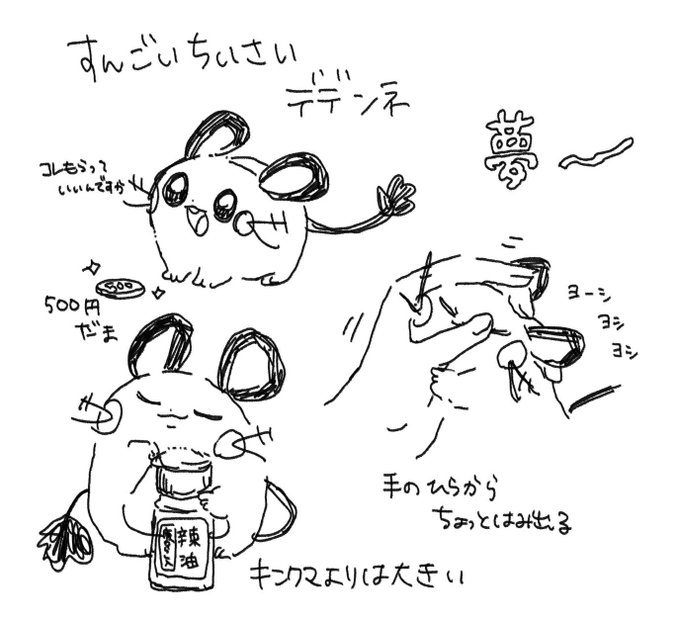 すんごいちいさい
デデンネ
夢〜
コレもらって
いいんですか
500
500円
だま
ヨーシ
ヨシ
ヨシ
手のひらから
ちょっとはみ出る
辣油
キンクマよりは大きい